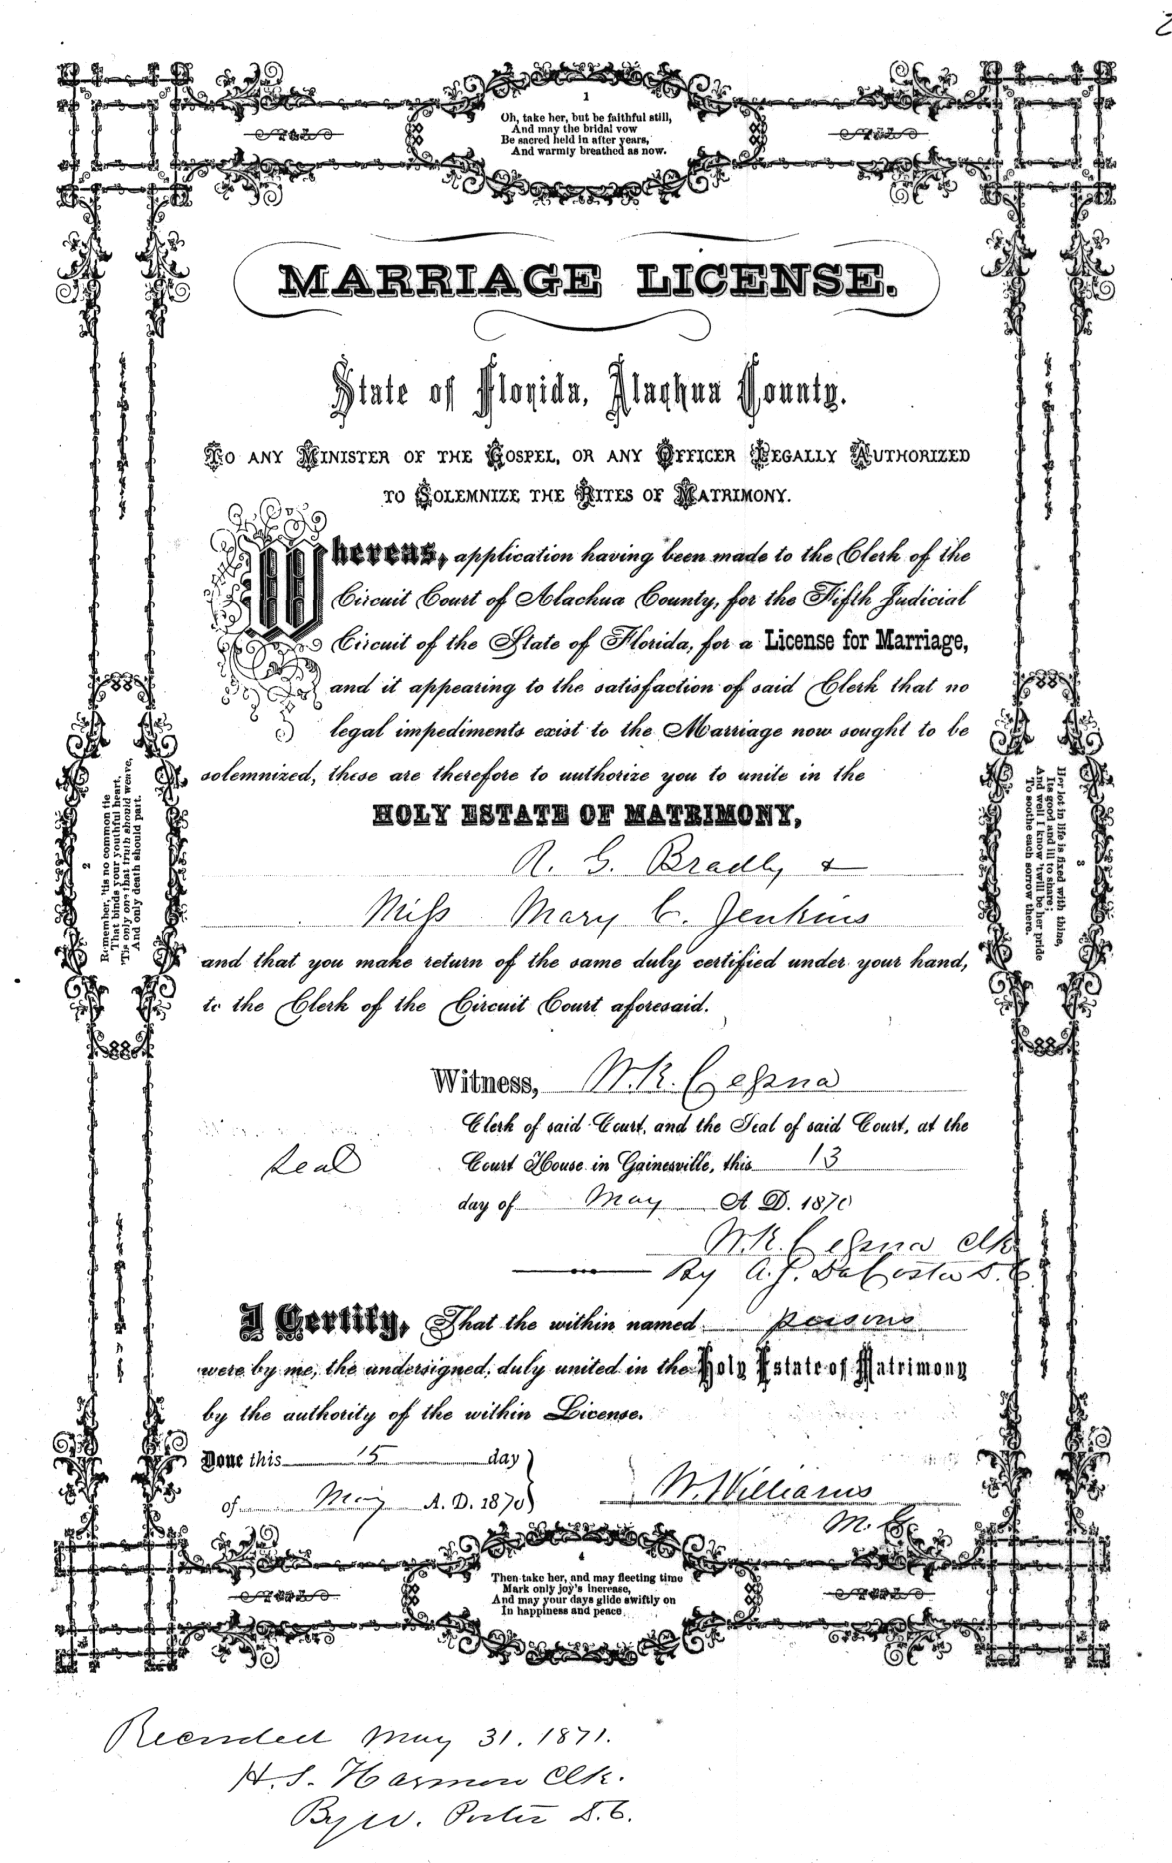 1
Oh, take her, but be faithful still,
And may the bridal vow
Be sacred held in after years,
And warmly breathed as now.
MARRIAGE LICENSE.
State of Florida, Alachua County.
TO ANY MINISTER OF THE GOSPEL, OR ANY OFFICER LEGALLY AUTHORIZED
TO SOLEMNIZE THE RITES OF MATRIMONY.
Whereas, application having been made to the Clerk of the
Circuit Court of Alachua County, for the Fifth Judicial
Circuit of the State of Florida, for a License for Marriage,
and it appearing to the satisfaction of said Clerk that no
legal impediments exist to the Marriage now sought to be
solemnized, these are therefore to authorize you to unite in the
HOLY ESTATE OF MATRIMONY,
R. G. Bradly &
Miss Mary C. Jenkins
and that you make return of the same duly certified under your hand,
to the Clerk of the Circuit Court aforesaid.
Witness, W. K. Cessna
Clerk of said Court, and the Seal of said Court, at the
Seal
Court House in Gainesville, this 13
day of May A. D. 1870
W. K. Cessna Clk
By A. J. DaCosta D. C.
I Certify, That the within named persons
were by me, the undersigned, duly united in the Holy Estate of Matrimony
by the authority of the within License.
Done this 15 day
of May A. D. 1870
W. Williams
M. G.
2
Remember, 'tis no common tie
That binds your youthful heart,
'Tis only one that truth should weave,
And only death should part.
3
Her lot in life is fixed with thine,
Its good and ill to share;
And well I know 'twill be her pride
To soothe each sorrow there.
4
Then take her, and may fleeting time
Mark only joy's increase,
And may your days glide swiftly on
In happiness and peace
Recorded May 31. 1871.
H. S. Harmon Clk.
By W. Porter D. C.